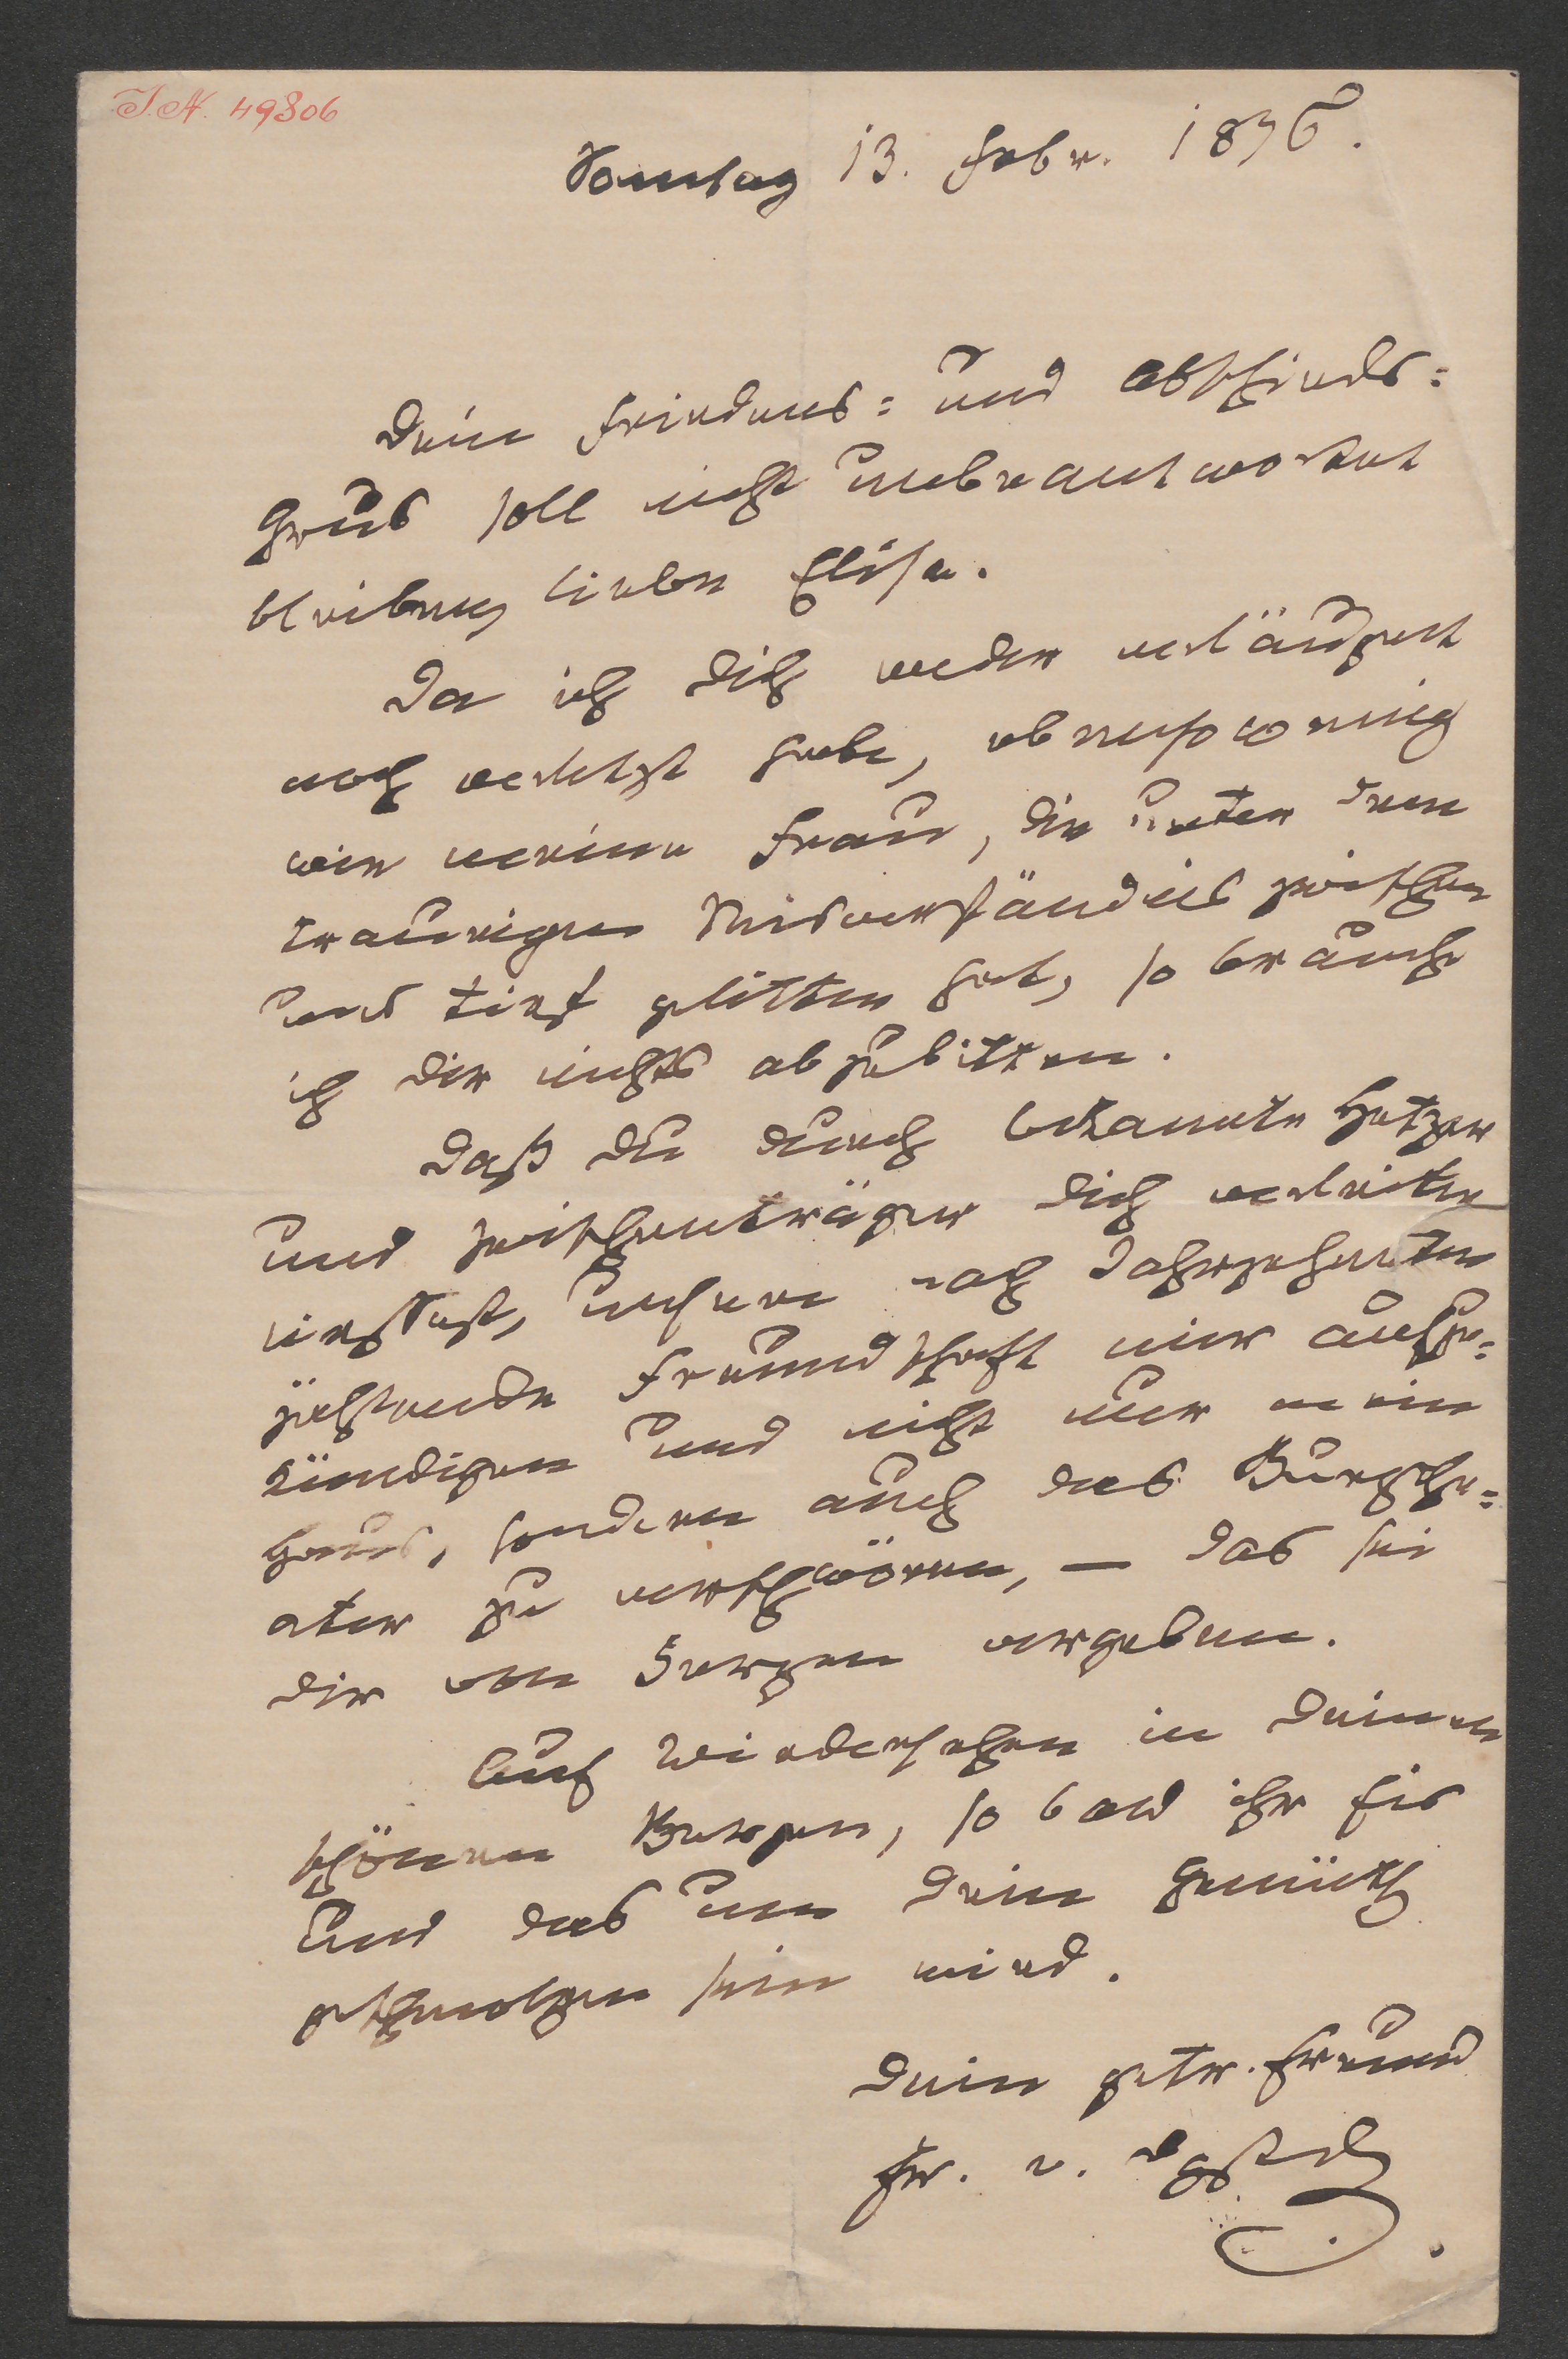 I.N. 49306
Sonntag 13. Febr. 1876.
Dein Friedens= und Abschieds=
Grus soll nicht unbeantwortet
bleiben, liebe Elise.
Da ich dich weder verläugnet
noch verletzt habe, ebensowenig
wie meine Frau, die unter dem
traurigen Misverständnis zwischen
uns tief gelitten hat, so brauche
ich dir nichts abzubitten.
Daß du durch bekannte Hetzer
und Zwischenträger dich verleiten
ließest, unsere nach Jahrzehnten
zählende Freundschaft mir aufzu=
kündigen und nicht nur mein
Haus, sondern auch das Burgthe=
ater zu verschwören, — das sei
dir von Herzen vergeben.
Auf Wiedersehen in deinen
schönen Bergen, so bald ihr Eis
und das um dein Gemüth
geschmolzen sein wird.
Dein getr. Freund
Fr. v.